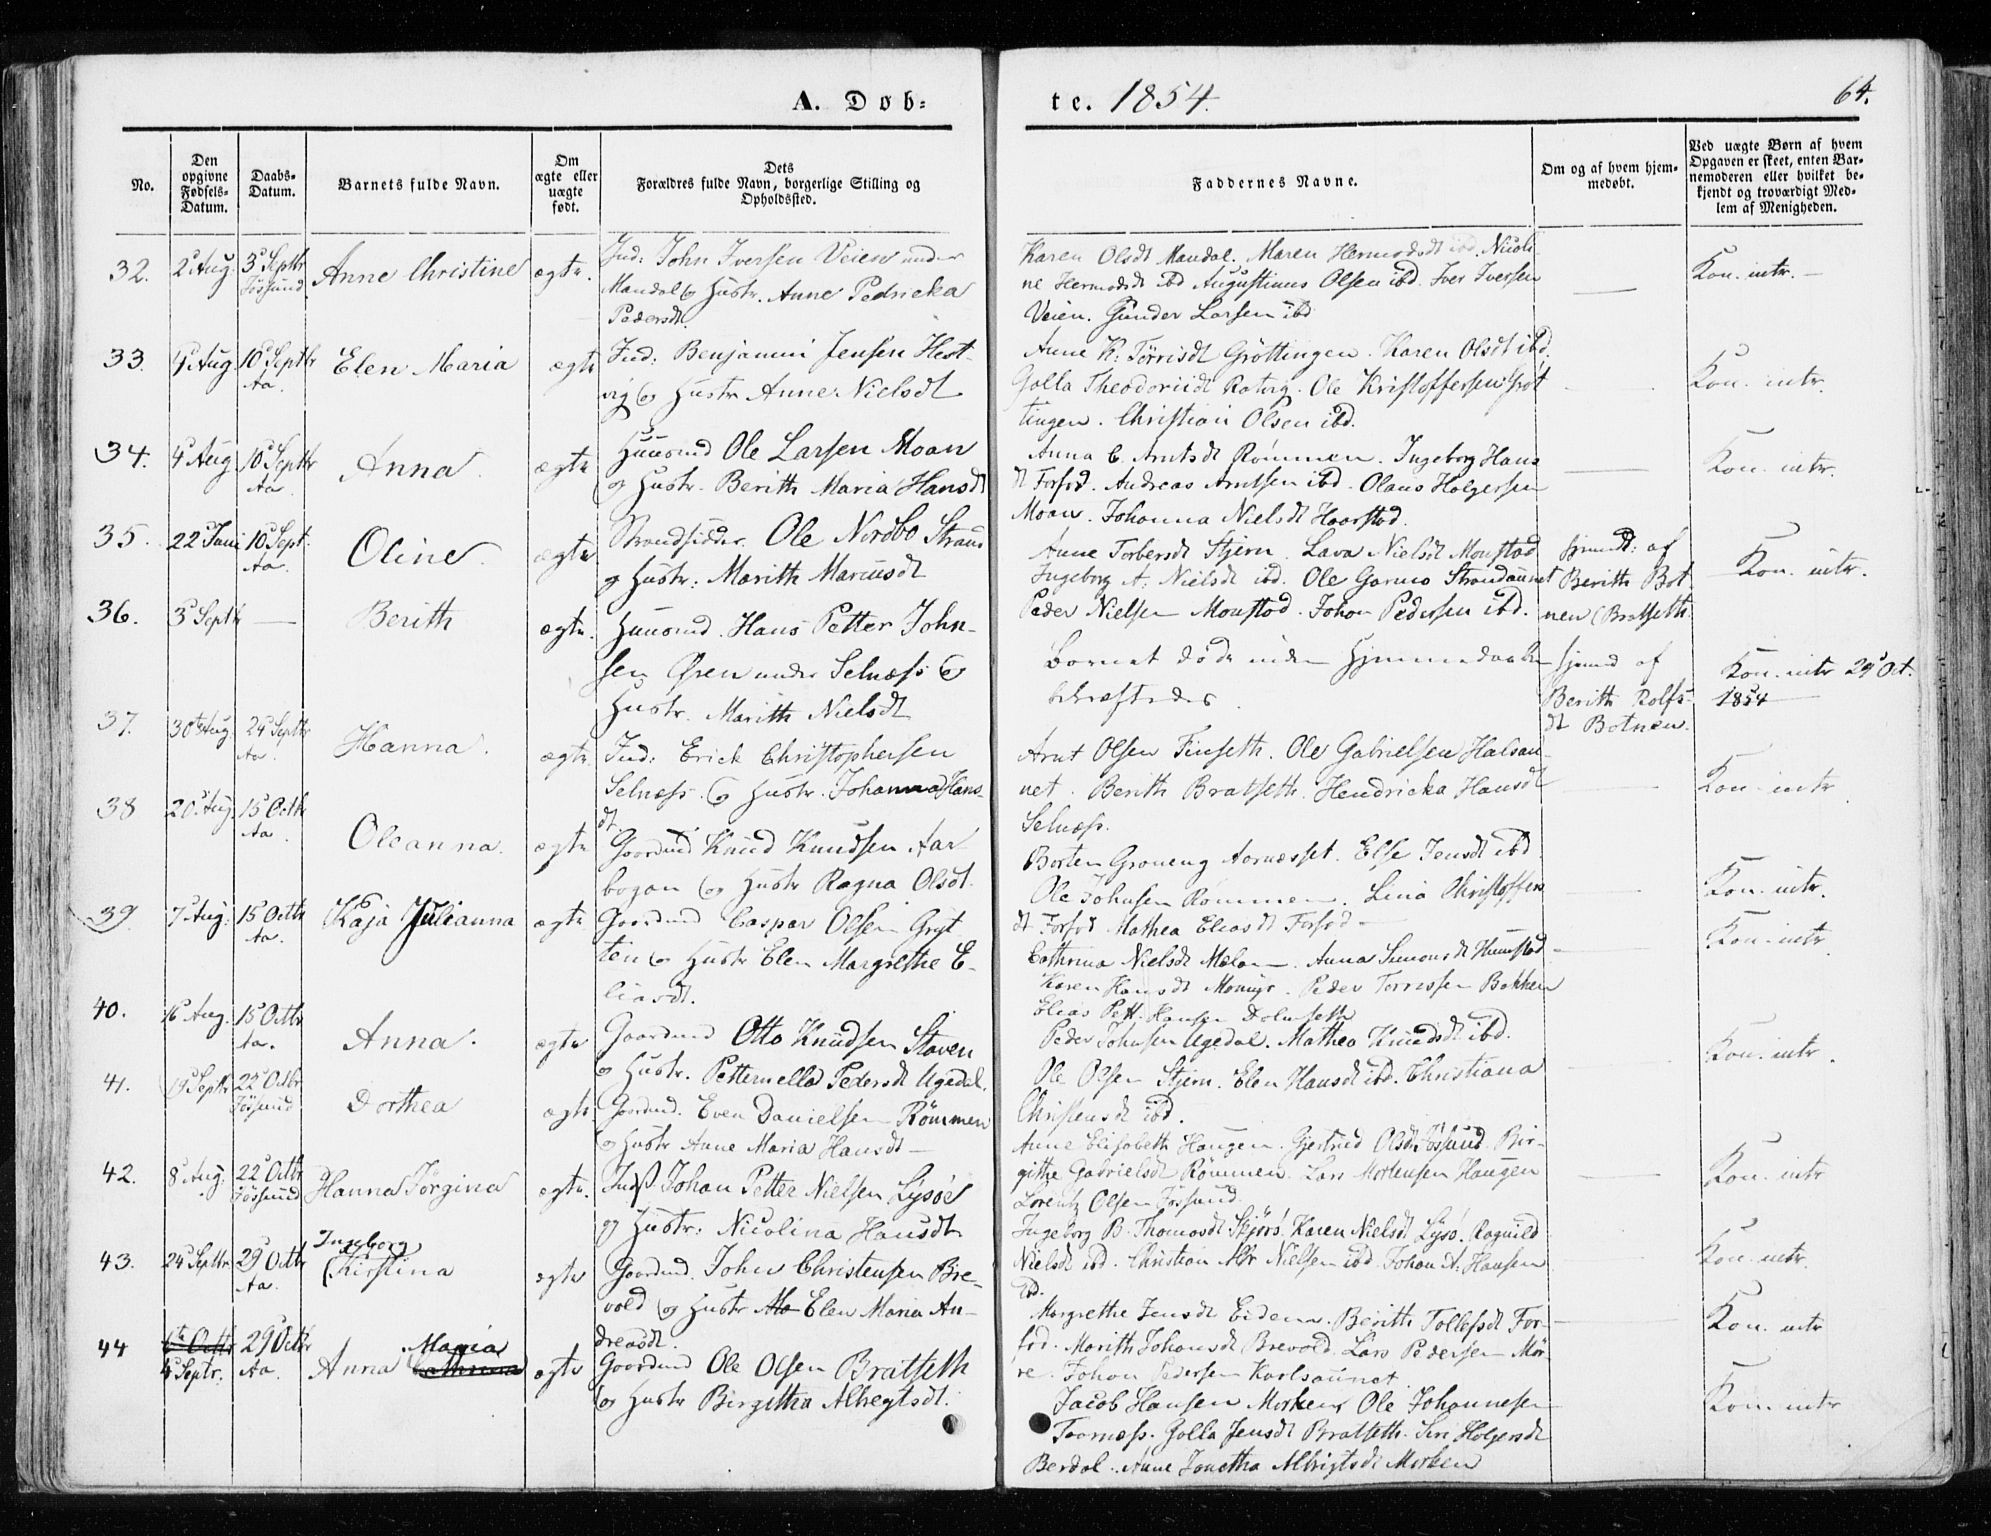 A. Døb-
te. 1854.
64.
No.
Den opgivne Fødsels-Datum.
Daabs-Datum.
Barnets fulde Navn.
Om ægte eller uægte født.
Dets Forældres fulde Navn, borgerlige Stilling og Opholdssted.
Faddernes Navne.
Om og af hvem hjemmedøbt.
Ved uægte Børn af hvem Opgaven er skeet, enten Barnemoderen eller hvilket bekjendt og troværdigt Medlem af Menigheden.
32. 2 Aug. 3 Septbr Jøssund Anne Christine ægte. Ind: John Iversen Veien under
Mandal og Hustr. Anne Pedricka
Pedersdt.
Karen Olsdt Mandal. Maren Hermodsdt ibd. Nicoli-
ne Hermodsdt ibd Augustinus Olsen ibd. Iver Iversen
Veien. Gunder Larsen ibd
Kon. intr.
33. Aug 10 Septbr Aa. Elen Maria ægte Ind: Benjamin Jensen Hest-
vig og Hustr Anne Nielsdt
Anne K: Tørrisdt Grøttingen. Karen Olsdt ibd.
Golla Ratvig. Ole Kristoffersen Grøt
tingen. Christian Olsen ibd.
Kon. intr.
34. 4 Aug 10 Septbr Aa. Anna. ægte Huusmd Ole Larsen Moan
og Hustr. Berith Maria Hansdt
Anna C. Arntsdt Rømmen. Ingeborg Hans
dt Forfod. Andreas Arntsen ibd. Olaus Holgersen
Moan. Johanna Nielsdt Haarstad.
Kon. intr.
35. 22 Juni 10 Sept. Aa. Oline. ægte Strandsidder. Ole Nordbo Strand
og Hustr: Marith Marcusdt
Anne Torbersdt Stjern. Lava Nielsdt Monstad
Ingeborg A. Nielsdt ibd. Ole Strandaunet
Peder Nielsen Monstad. Johan Pedersen ibd.
hjemdt: af
Berith Bot
nen (Bratseth
Kon. intr.
36. 3 Septbr Berith ægte. Huusmd. Hans Petter John-
sen Øren under Selnæss og
Hustr. Marith Nielsdt
Barnet døde inden Hjemmedaaben
bekræftedes.
hjemd af
Berith Rolfs-
dt Botnen.
Kon. intr 29 Oct.
1854
37. 30te Aug. 24 Septbr Aa Hanna. ægte. Ind: Erick Christophersen
Selnæss. og Hustr. Johanna Hans-
dt.
Arnt Olsen Finseth. Ole Gabrielsen Halsau-
net. Berith Bratseth. Hendricka Hansdt
Selnæss.
Kon. intr
38 20 Aug. 15 Octbr Aa. Oleanna. ægte Gaardmd Knud Knudsen Aar
bogan og Hustr Ragna Olsdt.
Borten Aarnesset. Else Jensdt ibd
Ole Johnsen Rømmen. Lina Christoffers
dt Forfod Mathea Eliasdt Forfod
Kon. intr.
39 7 Aug. 15 Octbr Aa. Kaja Julianna ægte Gaardmd Caspar Olsen Gryt
ten og Hustr Elen Margrethe E-
liasdt.
Cathrina Nielsdt Melan. Anna Simonsdt Humstad
Karen Hansdt Momyr. Peder Torrissen Bakken
Elias Pett. Hansen Dolmseth
Kon. intr
40. 16 Aug. 15 Octbr Aa. Anna. ægte Gaardmd Otto Knudsen Staven
og Hustr. Petternella Pedersdt Ugedal.
Peder Johnsen Ugedal. Mathea Knudsdt ibd.
Ole Olsen Stjern. Elen Hansdt ibd. Christiana
Christensdt ibd.
Kon. intr.
41. 19 Septbr 22 Octbr Jøssund Dorthea ægte Gaardmd. Even Danielsen Rømmen
og Hustr Anne Maria Hansdt
Anne Elisabeth Haugen. Gjertrud Olsdt Jøssund. Bir-
githe Gabrielsdt Rømmen. Lars Mortensen Haugen
Lorentz Olsen Jøssund.
Kon. intr
42. 8 Aug. 22 Octbr Jøssund Hanna Jørgina ægte. Indst Johan Petter Nielsen Lysøe
og Hustr: Nicolina Hansdt
Ingeborg B. Thomasdt Skjørø. Karen Nielsdt Lysø. Ragnild
Nielsdt ibd. Christian Nielsen ibd. Johan A. Hansen
ibd.
Kon. intr.
43. 24 Septbr. 29 Octbr Aa. Ingeborg
Kirstina ægte Gaardmd. John Christensen Bre-
vold og Hustr Ma Elen Maria An-
dreasdt.
Margrethe Jensdt Eiden. Berith Tollefsdt For-
fod. Marith Johansdt Brevold. Lars Pedersen Mør-
re. Johan Pedersen Karlsaunet
Kon. intr
44 6te Octbr 4 Septr. 29 Octbr Aa. Maria
Anna Cathrina ægte Gaardmd Ole Olsen Bratseth
og Hustr Birgitha Albregtsdt.
Jacob Hansen Morken. Ole Johannesen
Taarnæss. Golla Jensdt Bratseth. Siri Holgersdt
Berdal. Anne Janetha Albrigtsdt Morken
Kon. intr